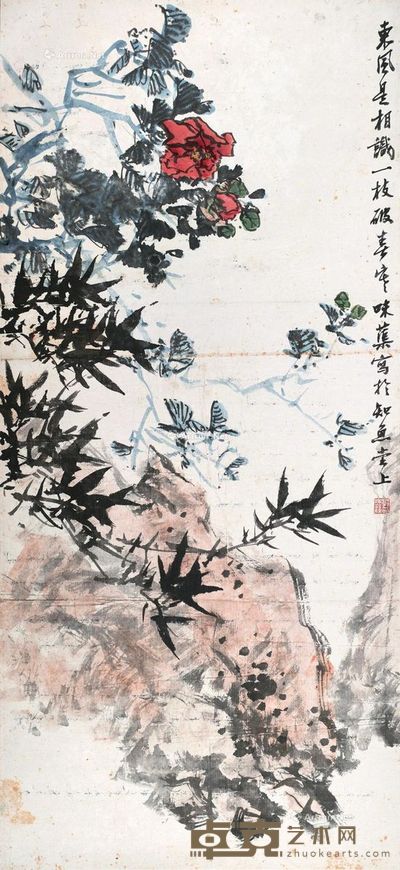 東風是相識一枝破春寒味蕖寫於知魚堂上
卓克艺术网
zhuokearts.com